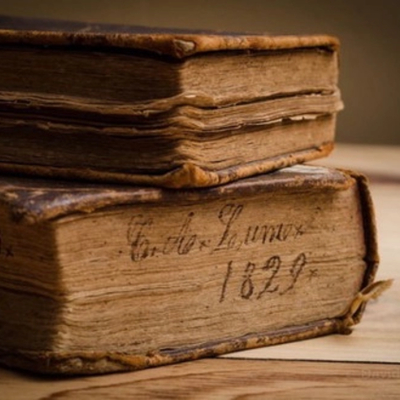 C. A. Lume
1829